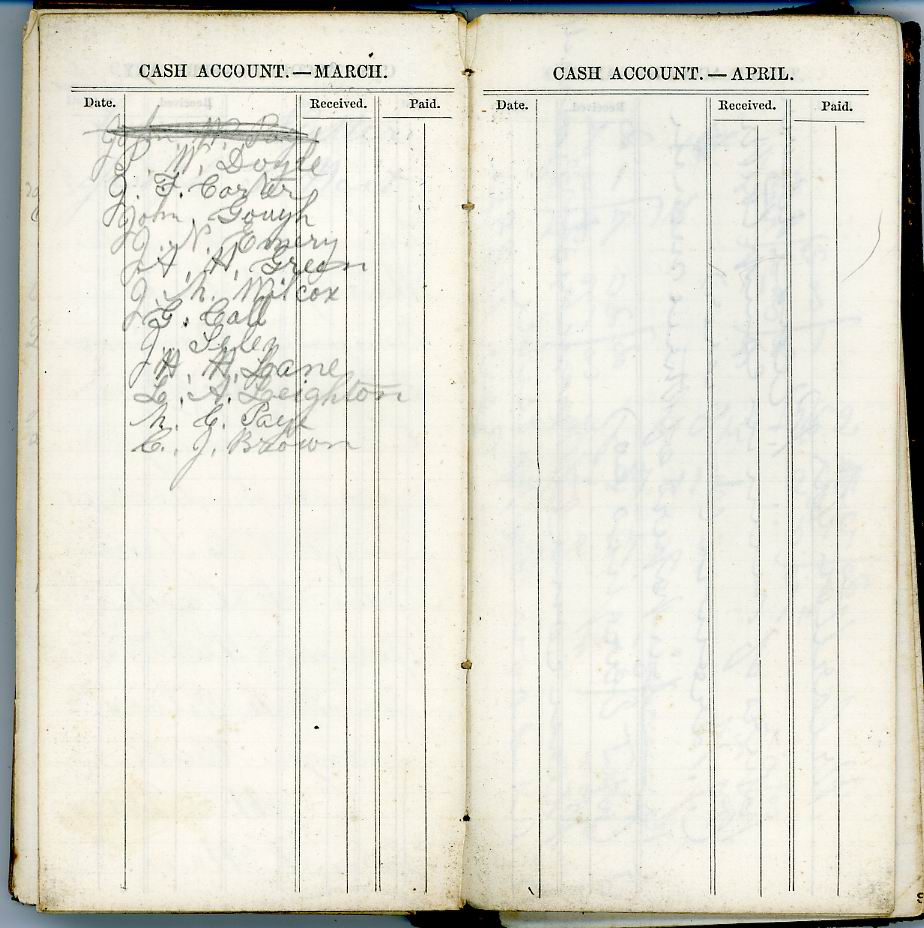 CASH ACCOUNT.—MARCH.
Date. Received. Paid.
John W.
P. W. Doyle
J. F. Carter
John Gough
J. N. Emery
A. H. Green
J. M. Wilcox
G. Call
J.
H. H. Lane
L. A. Leighton
M. G. Page
C. J. Brown
CASH ACCOUNT.—APRIL.
Date. Received. Paid.